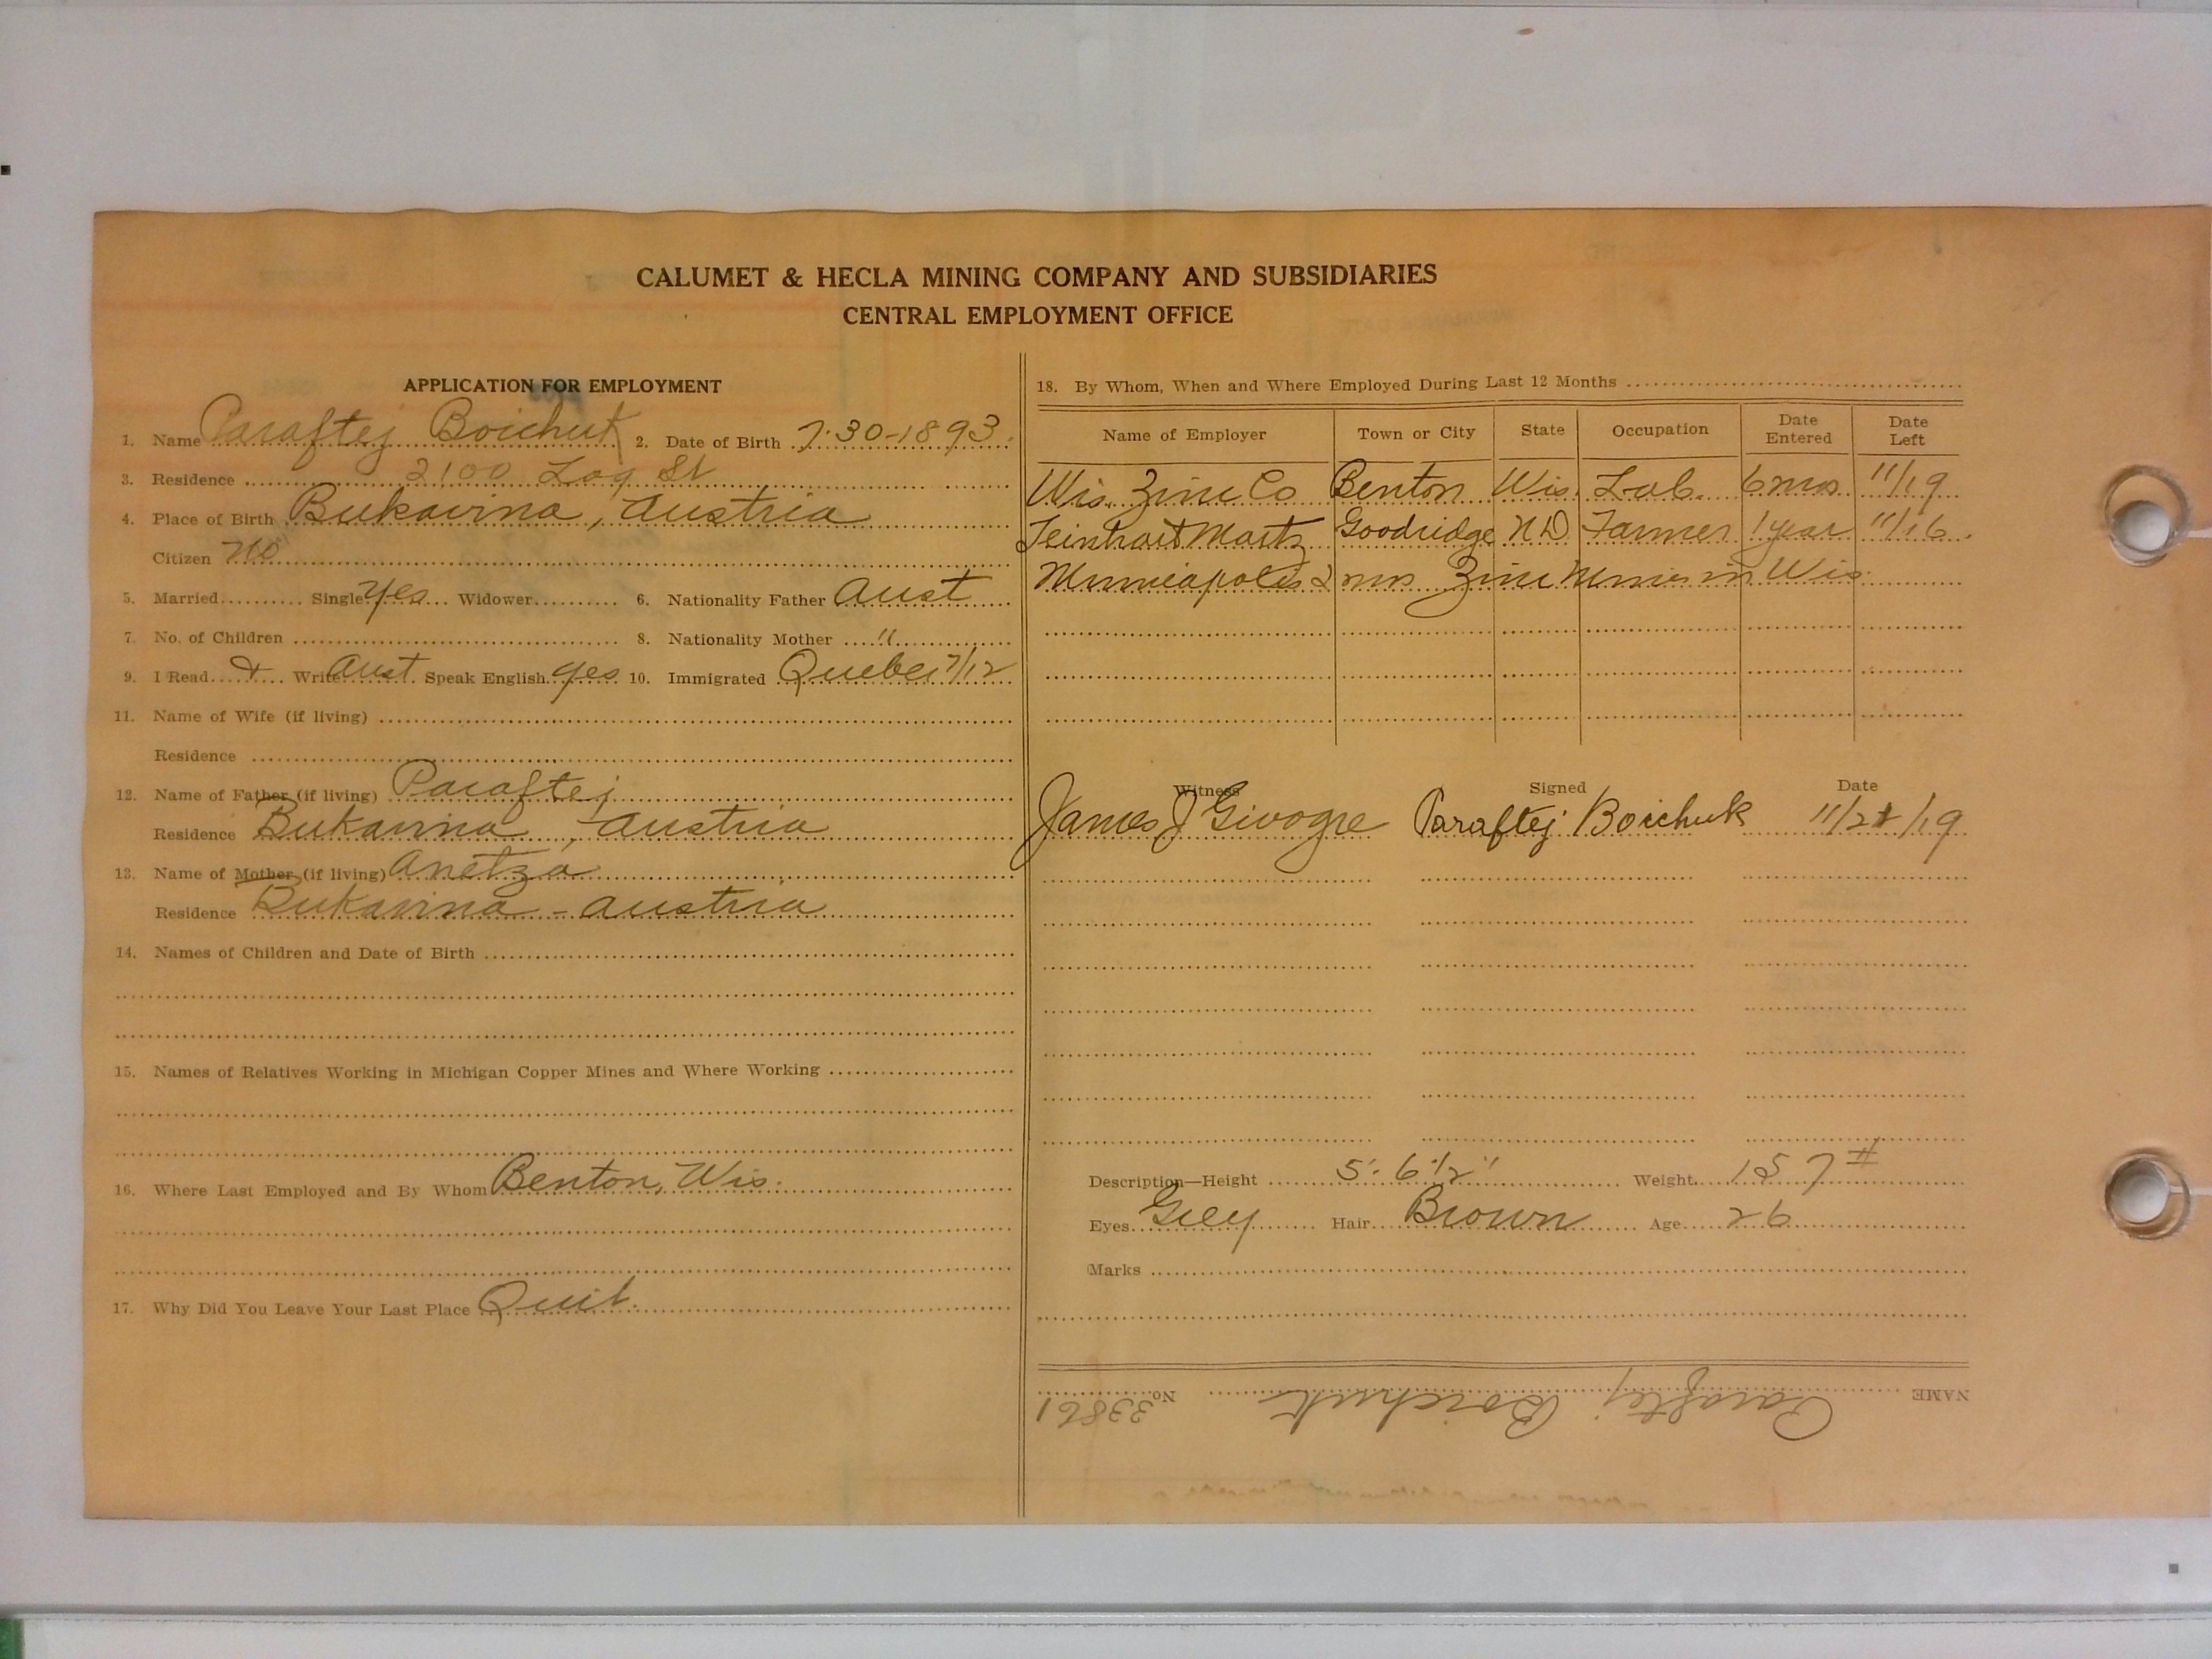 CALUMET & HECLA MINING COMPANY AND SUBSIDIARIES
CENTRAL EMPLOYMENT OFFICE
APPLICATION FOR EMPLOYMENT
1. Name Paraftej Boichuk 2. Date of Birth 7-30-1893
3. Residence 2100 Log St
4. Place of Birth Bukavina, Austria
Citizen No
5. Married Single Yes Widower 6. Nationality Father Aust
7. No. of Children 8. Nationality Mother "
9. I Read & Write Aust Speak English yes 10. Immigrated Quebec 7/12
11. Name of Wife (if living)
Residence
12. Name of Father (if living) Paraftej
Residence Bukavina, Austria
13. Name of Mother (if living) Anetza
Residence Bukavina - Austria
14. Names of Children and Date of Birth
15. Names of Relatives Working in Michigan Copper Mines and Where Working
16. Where Last Employed and By Whom Benton, Wis.
17. Why Did You Leave Your Last Place Quit.
18. By Whom, When and Where Employed During Last 12 Months
Name of Employer Town or City State Occupation Date Entered Date Left
Wis. Zinc Co Benton Wis. Lab. 6 mos 11/19
Goodridge N D Farmer 1 year 11/16
Minneapolis 2 mos Zinc Mines in Wis.
Witness Signed Date
James J Paraftej Boichuk 11/ /19
Description—Height 5' 6 1/2" Weight 157 #
Eyes Grey Hair Brown Age 26
Marks
NAME Paraftej Boichuk No. 33861